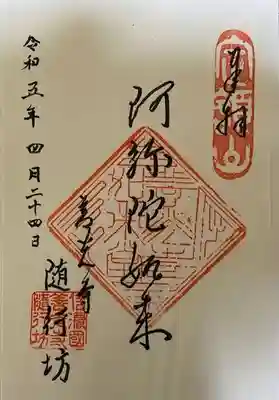 奉拝
阿弥陀如来
善光寺
随行坊
令和五年 四月二十四日
信濃國
善光寺
随行坊